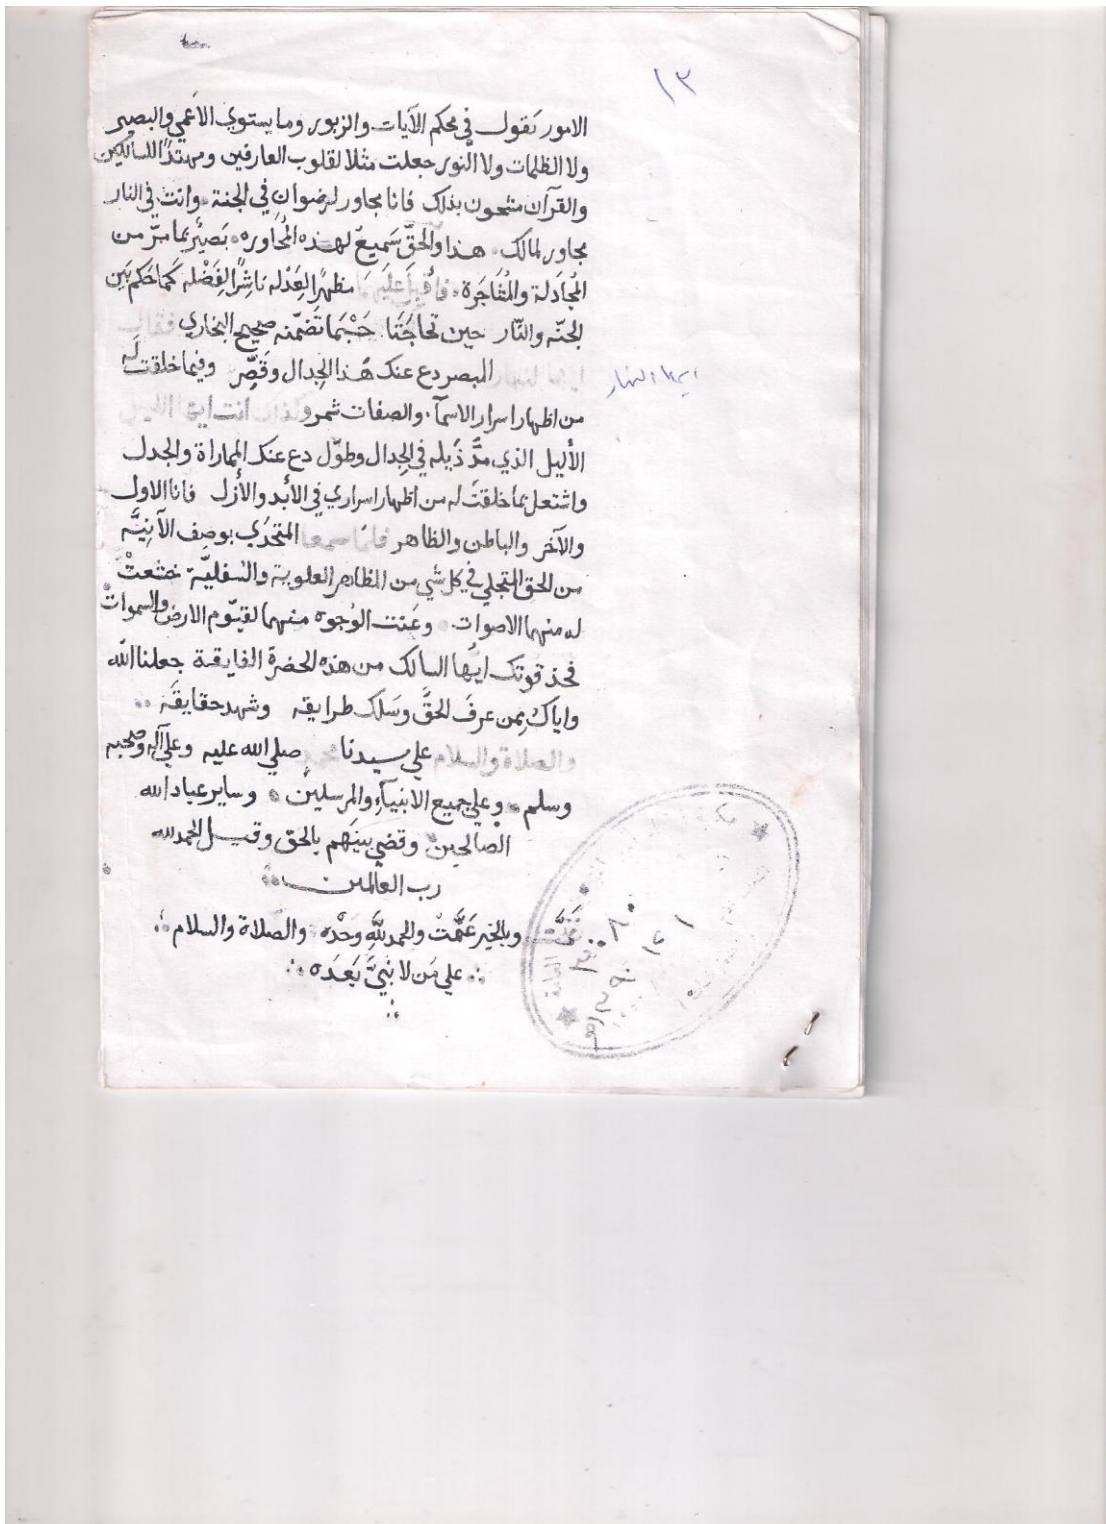 ١٣
الامور تقول في محكم الآيات والزبور وما يستوي الاَعمي والبصير
ولا الظلمات ولا النور جعلت مثلا لقلوب العارفين ومهتدًا للسالكين
والقرآن مشحون بذلك فانا مجاور لرضوان في الجنة وانت في النار
مجاور لمالك هذا والحقّ سَميعٌ لهذه المُحاوره بَصيرٌ بما مرّ من
المُجادَلة والمُفَاجَرة فأقبلَ عليهما مظهرًا لِعَدْله ناشِرًا لِفَضْله كَما حَكم بَين
الجنّه والنّار حين تحاجَتَا حَسْبَما تَضمّنه صحيح البخاري فقال
ايها النهار المبصر دع عنك هَذا الجِدال وقَصِّر وفيما خلقت لَه
ايها النهار
من اظهار اسرار الاسمآء والصفات شمر وكذلك انت ايها الليل
الأليل الذي مدَّ ذَيله في الجِدال وطوّل دع عنك المماراة والجدل
واشتعل بما خلقتَ له من اظهار اسراري في الأبد والأزل فانا الاول
والآخر والباطن والظاهر فلمّا سمعا المتحدي بوصِف الآنِيَّه
من الحق المتجلي في كل شي من المظاهر العلوية والسُفليَّة خشعتْ
له منهما الاصوات وعَنت الوُجوه منهما لقيّوم الارض والسموات
فخذ قوتك ايُّها السالك من هذه الحضرة الفايقة جعلنا الله
واياكَ مِمن عرفَ الحقَّ وسَلك طرايقه وشهد حقايقَه
والصلاة والسلام علي سيدنا محمد صلي الله عليه وعلي آله وصحبه
وسلم وعلي جميع الانبيآء والمرسلين وساير عباد الله
الصالحين وقضي بينَهم بالحق وقيل الحمد لله
رب العالمين
تمَّت وبالخير عَمَّتْ والحمد للَّهِ وَحْدَه والصَّلاة والسلام
علي مَن لا نبيَّ بَعدَه